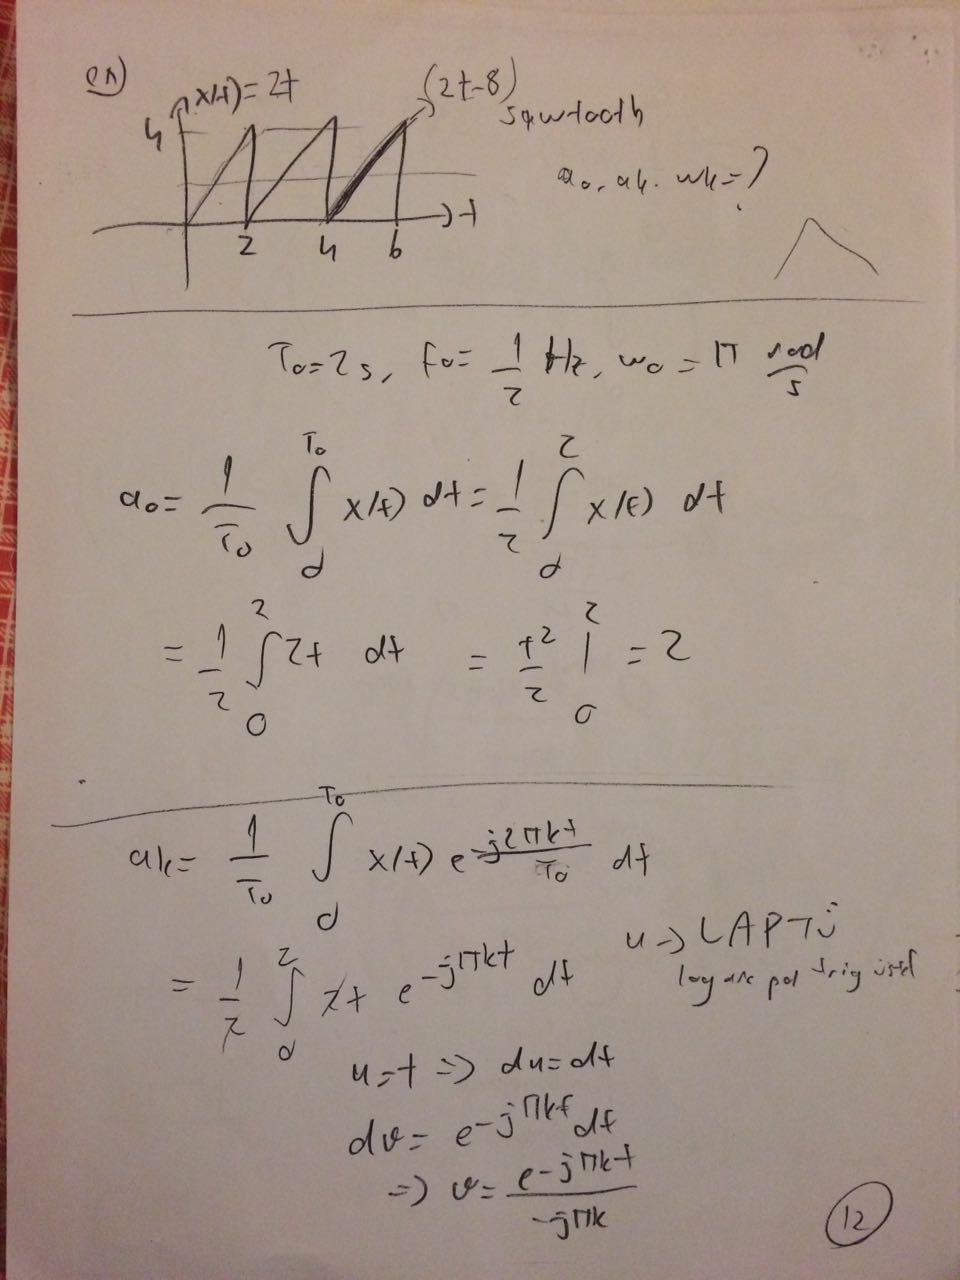 ex)
x(t) = 2t
(2t-8)
sawtooth
4
a0, ak, wk = ?
t
2 4 6
T0 = 2s, f0 = 1/2 Hz, w0 = π rad/s
a0 = 1/T0 ∫_0^T0 x(t) dt = 1/2 ∫_0^2 x(t) dt
= 1/2 ∫_0^2 2t dt = t^2/2 |_0^2 = 2
ak = 1/T0 ∫_0^T0 x(t) e^-j2πkt/T0 dt
= 1/2 ∫_0^2 2t e^-jπkt dt
u => LAPTÜ
log arc pol trig üstel
u = t => du = dt
dv = e^-jπkt dt
=> v = e^-jπkt/-jπk
12